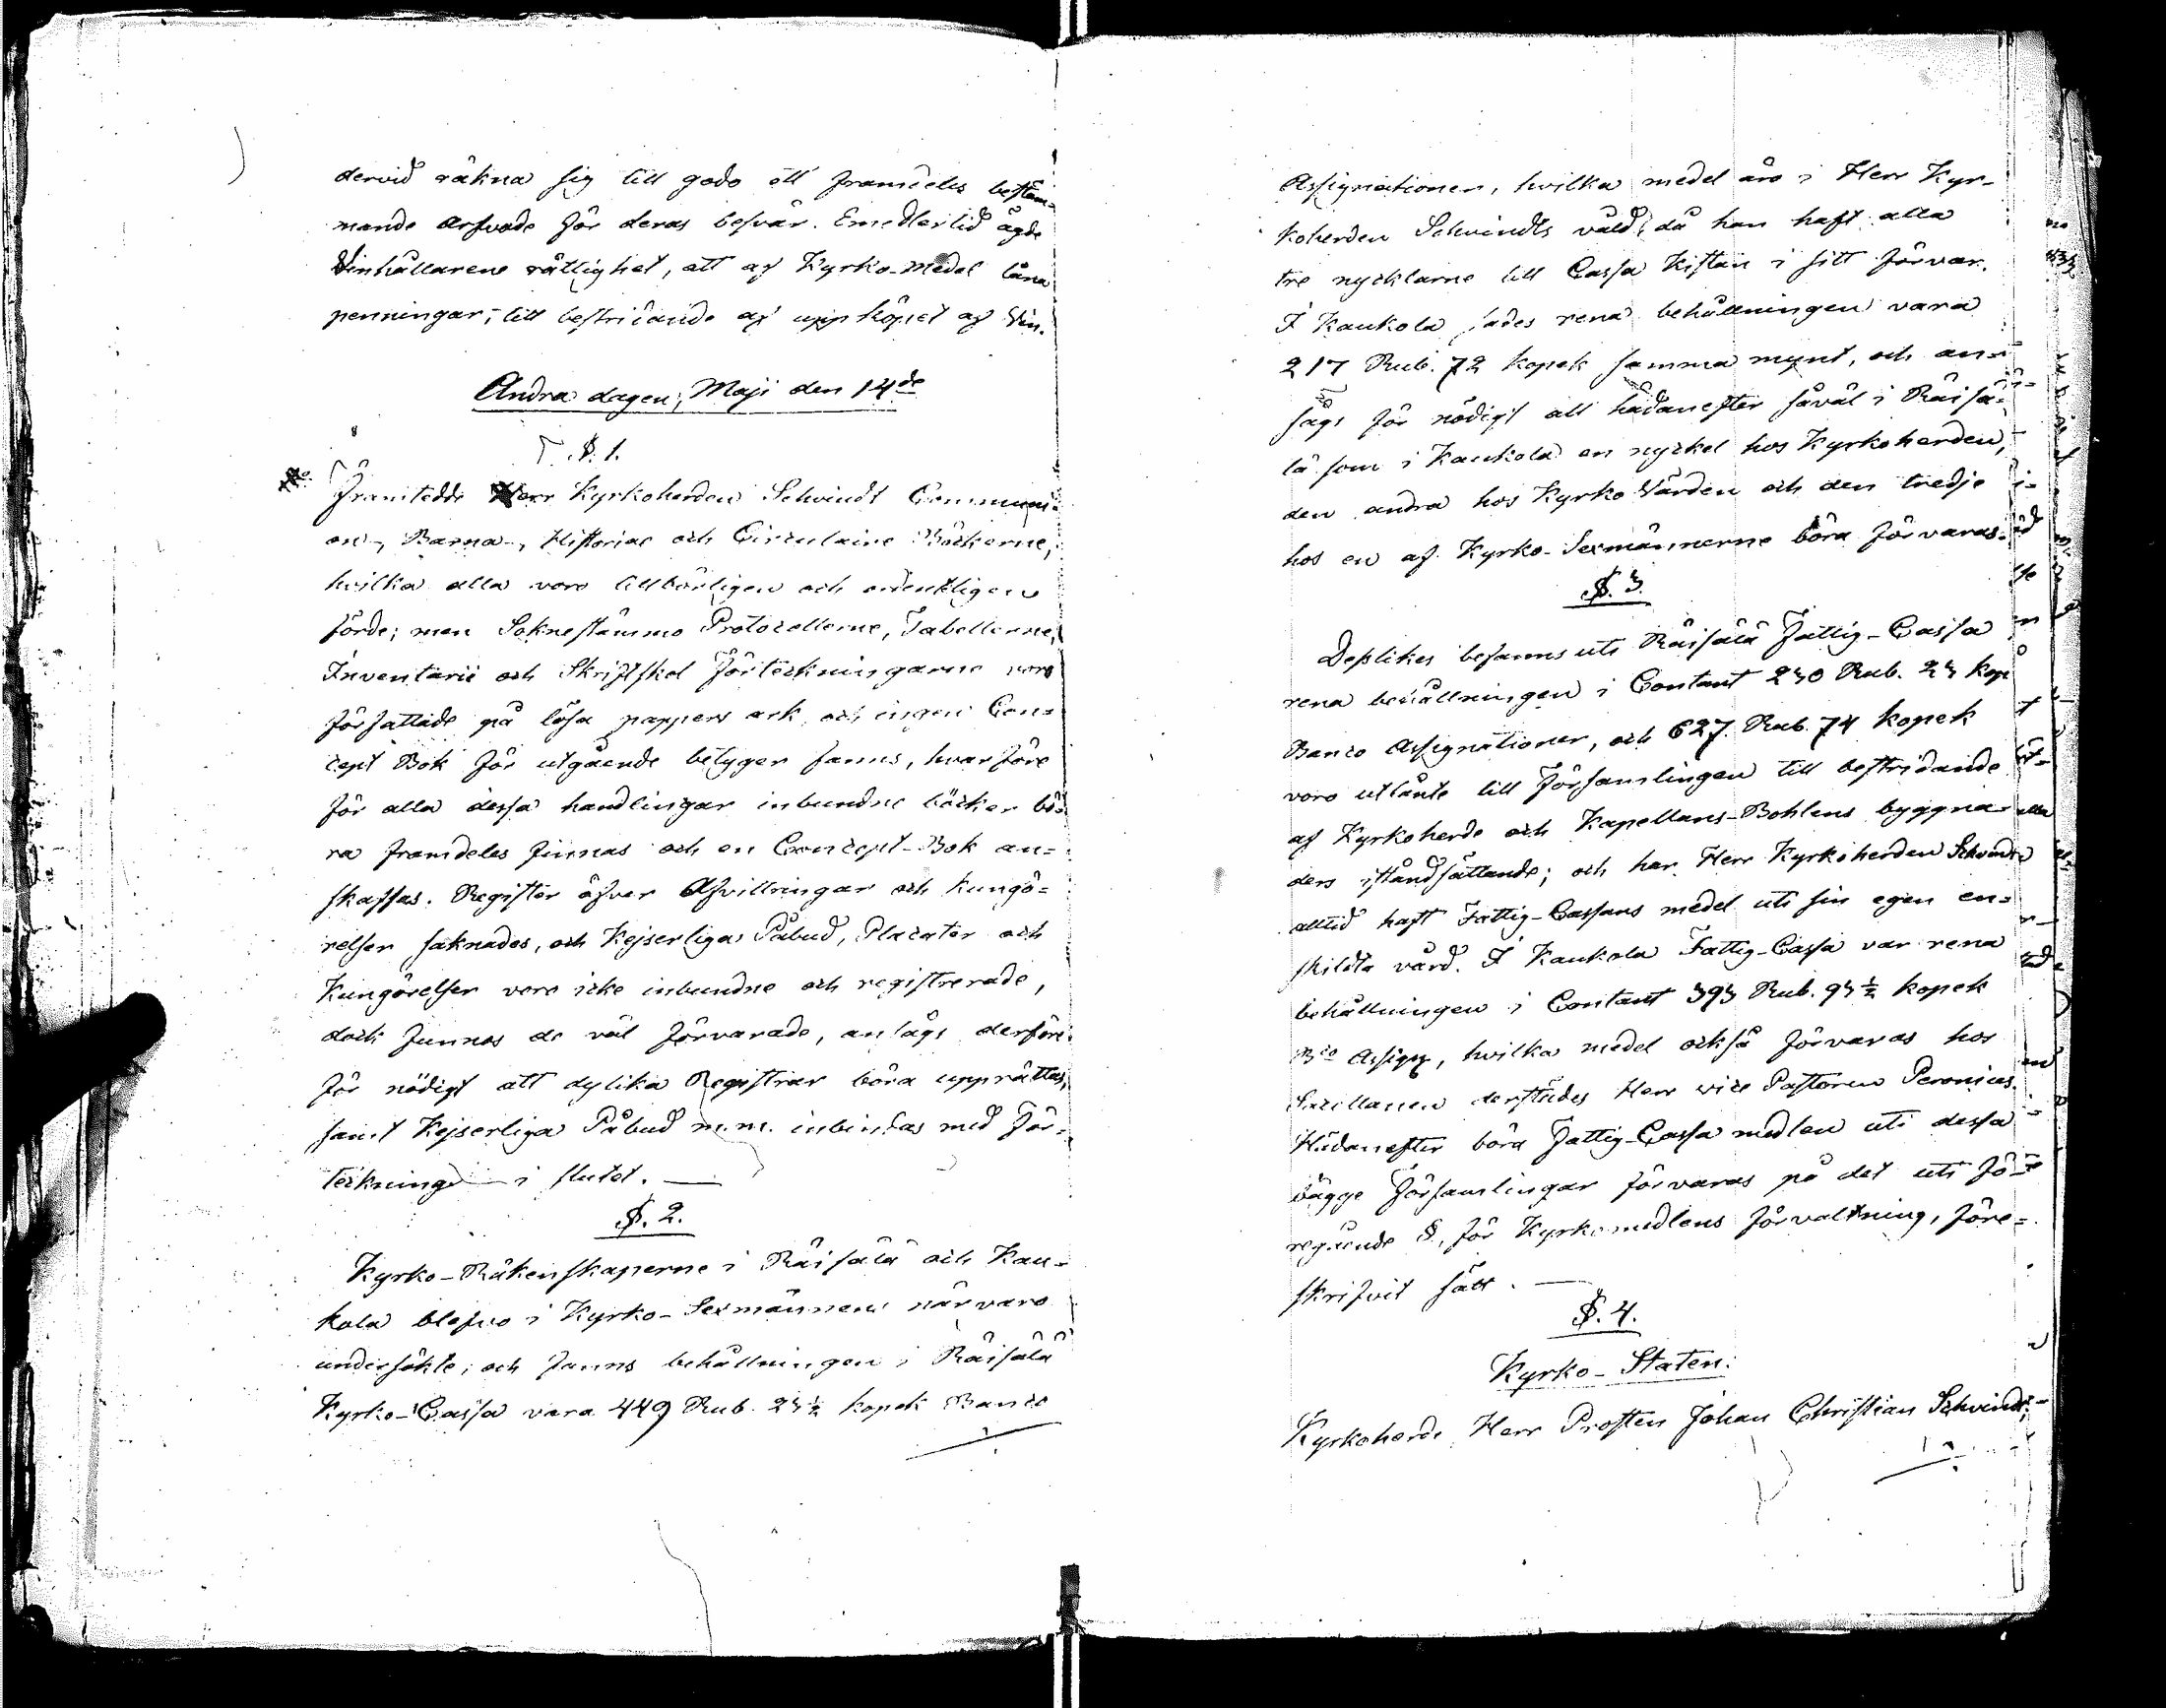 dervid räkna sig till godo ett framdeles bestäm-
mande arfvode för deras besvär. Emedlertid ägde
Vinhållarene rättighet, att af Kyrko-medel låna
penningar, till bestridande af uppköpet af Vin.
Andra dagen, Maji den 14de
§. 1.
Framtedde Herr Kyrkoherden Schvindt Communi-
on-, Barna-, Historiae och Circulaire Böckerne,
hvilka alla voro tillbörligen och ordentligen
förde; men Soknestämmo Protocollerne, Tabellerne,
Inventarii och Skriftskol Förteckningarne voro
författade på lösa pappers ark, och ingen Con-
cept Bok för utgående betyger fanns, hvarföre
för alla dessa handlingar inbundne böcker bö-
ra framdeles finnas och en Concept-Bok an-
skaffas. Register öfver Afvittringar och kungö-
relser saknades, och Kejserliga Påbud, Placater och
Kungörelser voro icke inbundne och registrerade,
dock funnos de väl förvarade, ansågs derföre
för nödigt att dylika Registrar böra upprättas,
samt Kejserliga Påbud m.m. inbindas med För-
teckning i slutet.
§. 2.
Kyrko-Räkenskaperne i Räisälä och Kau-
kola blefvo i Kyrko-Sexmännens närvaro
undersökte; och fanns behållningen i Räisälä
Kyrko-Cassa vara 449 Rub. 23½ kopek Banco
Assignationer, hvilka medel äro i Herr Kyr-
koherden Schvindts våld, då han haft alla
tre nycklarne till Cassa Kistan i sitt förvar.
I Kaukola sades rena behållningen vara
217 Rub. 72 kopek samma mynt, och an-
sågs för nödigt att hädanefter såväl i Räisä-
lä som i Kaukola en nyckel hos Kyrkoherden,
den andra hos Kyrko Värden och den tredje
hos en af Kyrko-Sexmännerne böra förvaras.
§. 3.
Desslikes befanns uti Räisälä Fattig-Cassa
rena behållningen i Contant 230 Rub. 23 kop
Banco Assignationer, och 627 Rub. 74 kopek
voro utlånte till Församlingen till bestridande
af Kyrkoherde och Kapellans-Bohlens byggna-
ders iståndsättande; och har Herr Kyrkoherden Schvindt
alltid haft Fattig-Cassans medel uti sin egen en-
skildta vård. I Kaukola Fattig-Cassa var rena
behållningen i Contant 393 Rub. 93½ kopek
Bco Assign, hvilka medel också förvaras hos
Sacellanen derstädes Herr vice Pastoren Peronius.
Hädanefter böra Fattig-Cassa medlen uti dessa
bägge Församlingar förvaras på det uti fö-
regående §, för Kyrkomedlens förvaltning, före-
skrifvit sätt.
§. 4.
Kyrko-Staten.
Kyrkoherde Herr Prosten Johan Christian Schvindt,